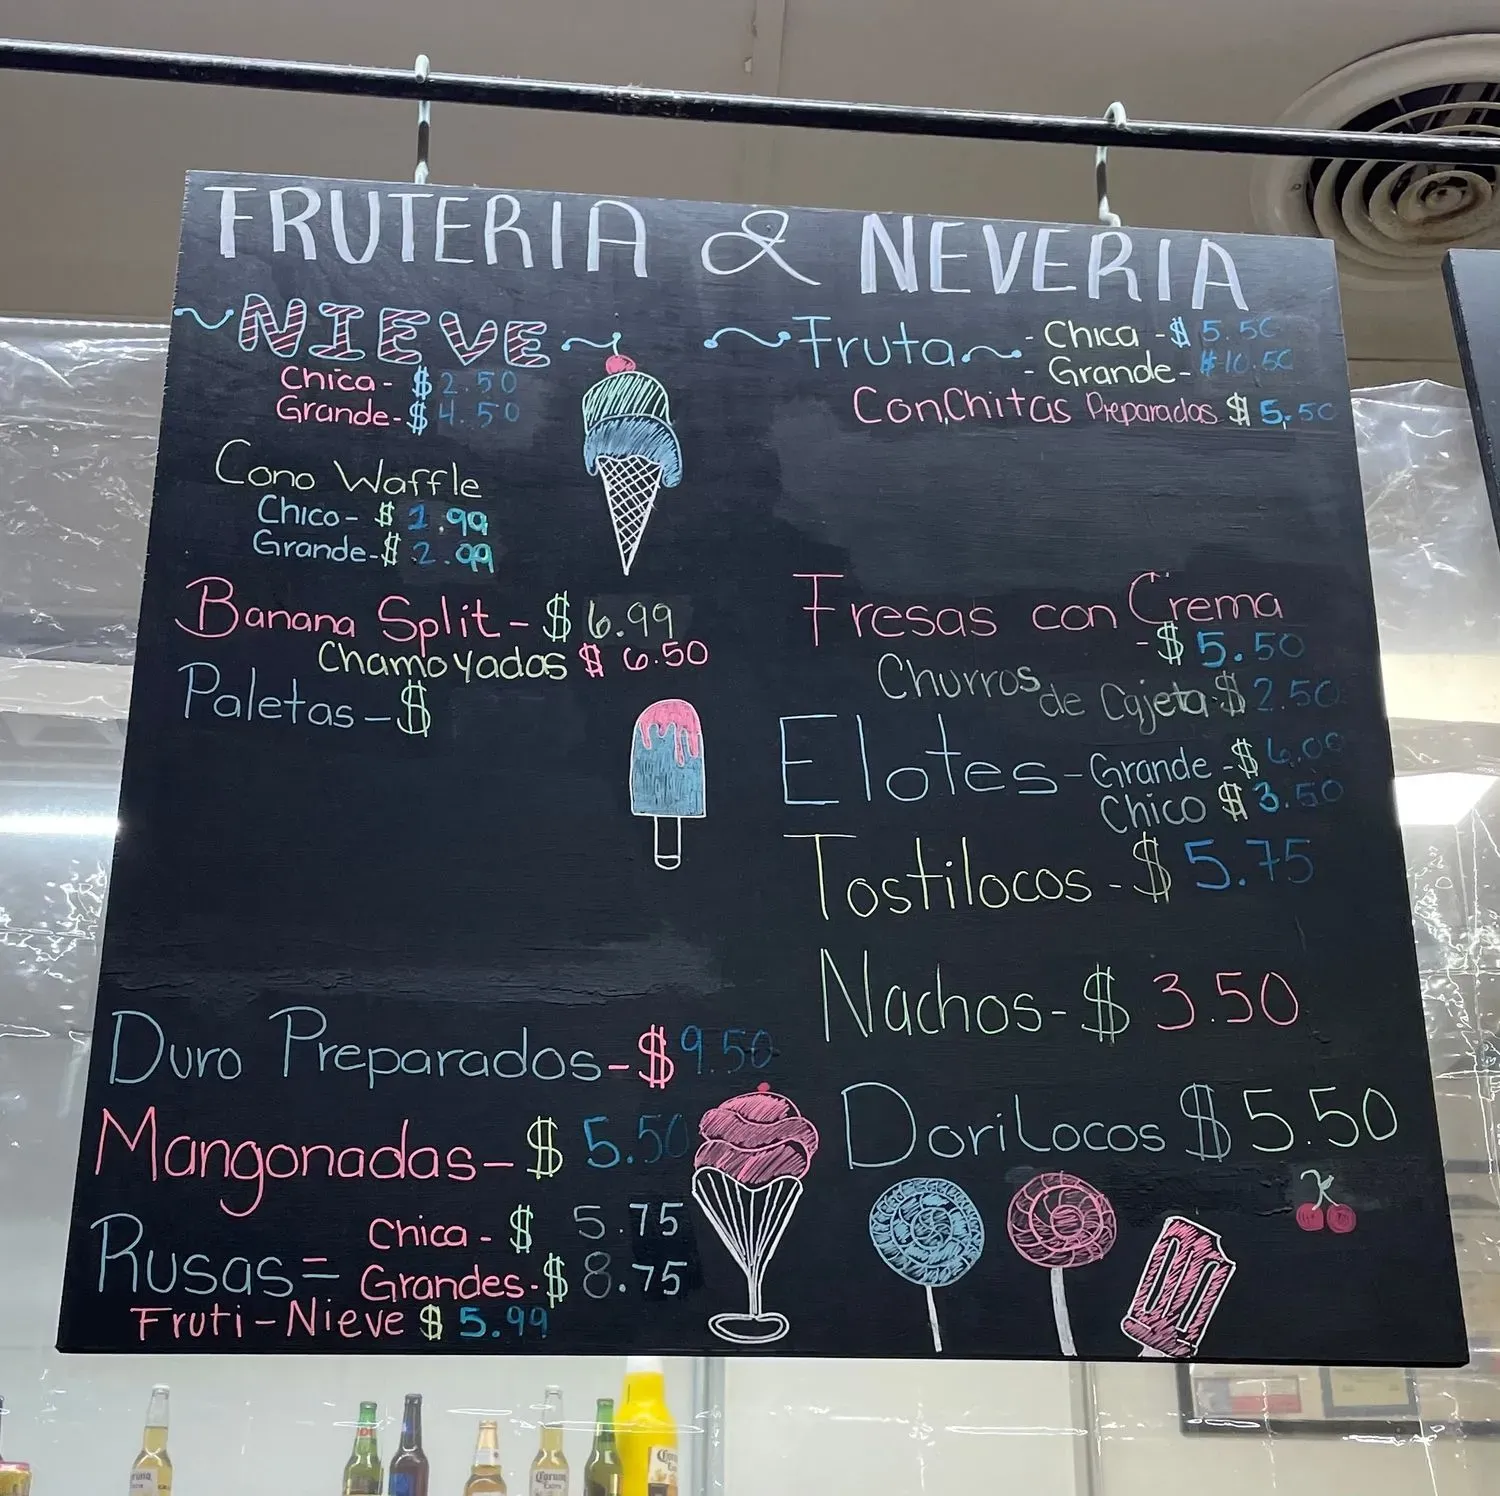 FRUTERIA & NEVERIA
~NIEVE~
Chica - $ 2.50
Grande - $ 4.50
Cono Waffle
Chico - $ 1.99
Grande - $ 2.99
Banana Split - $ 6.99
Chamoyadas $ 6.50
Paletas - $
Duro Preparados - $ 9.50
Mangonadas - $ 5.50
Rusas = Chica - $ 5.75
Grandes - $ 8.75
Fruti-Nieve $ 5.99
~Fruta~ - Chica - $ 5.50
- Grande - $ 10.50
Con,Chitas Preparados $ 5.50
Fresas con Crema
- $ 5.50
Churros de Cajeta $ 2.50
Elotes - Grande - $ 6.00
Chico $ 3.50
Tostilocos - $ 5.75
Nachos - $ 3.50
DoriLocos $ 5.50
Corona
Extra